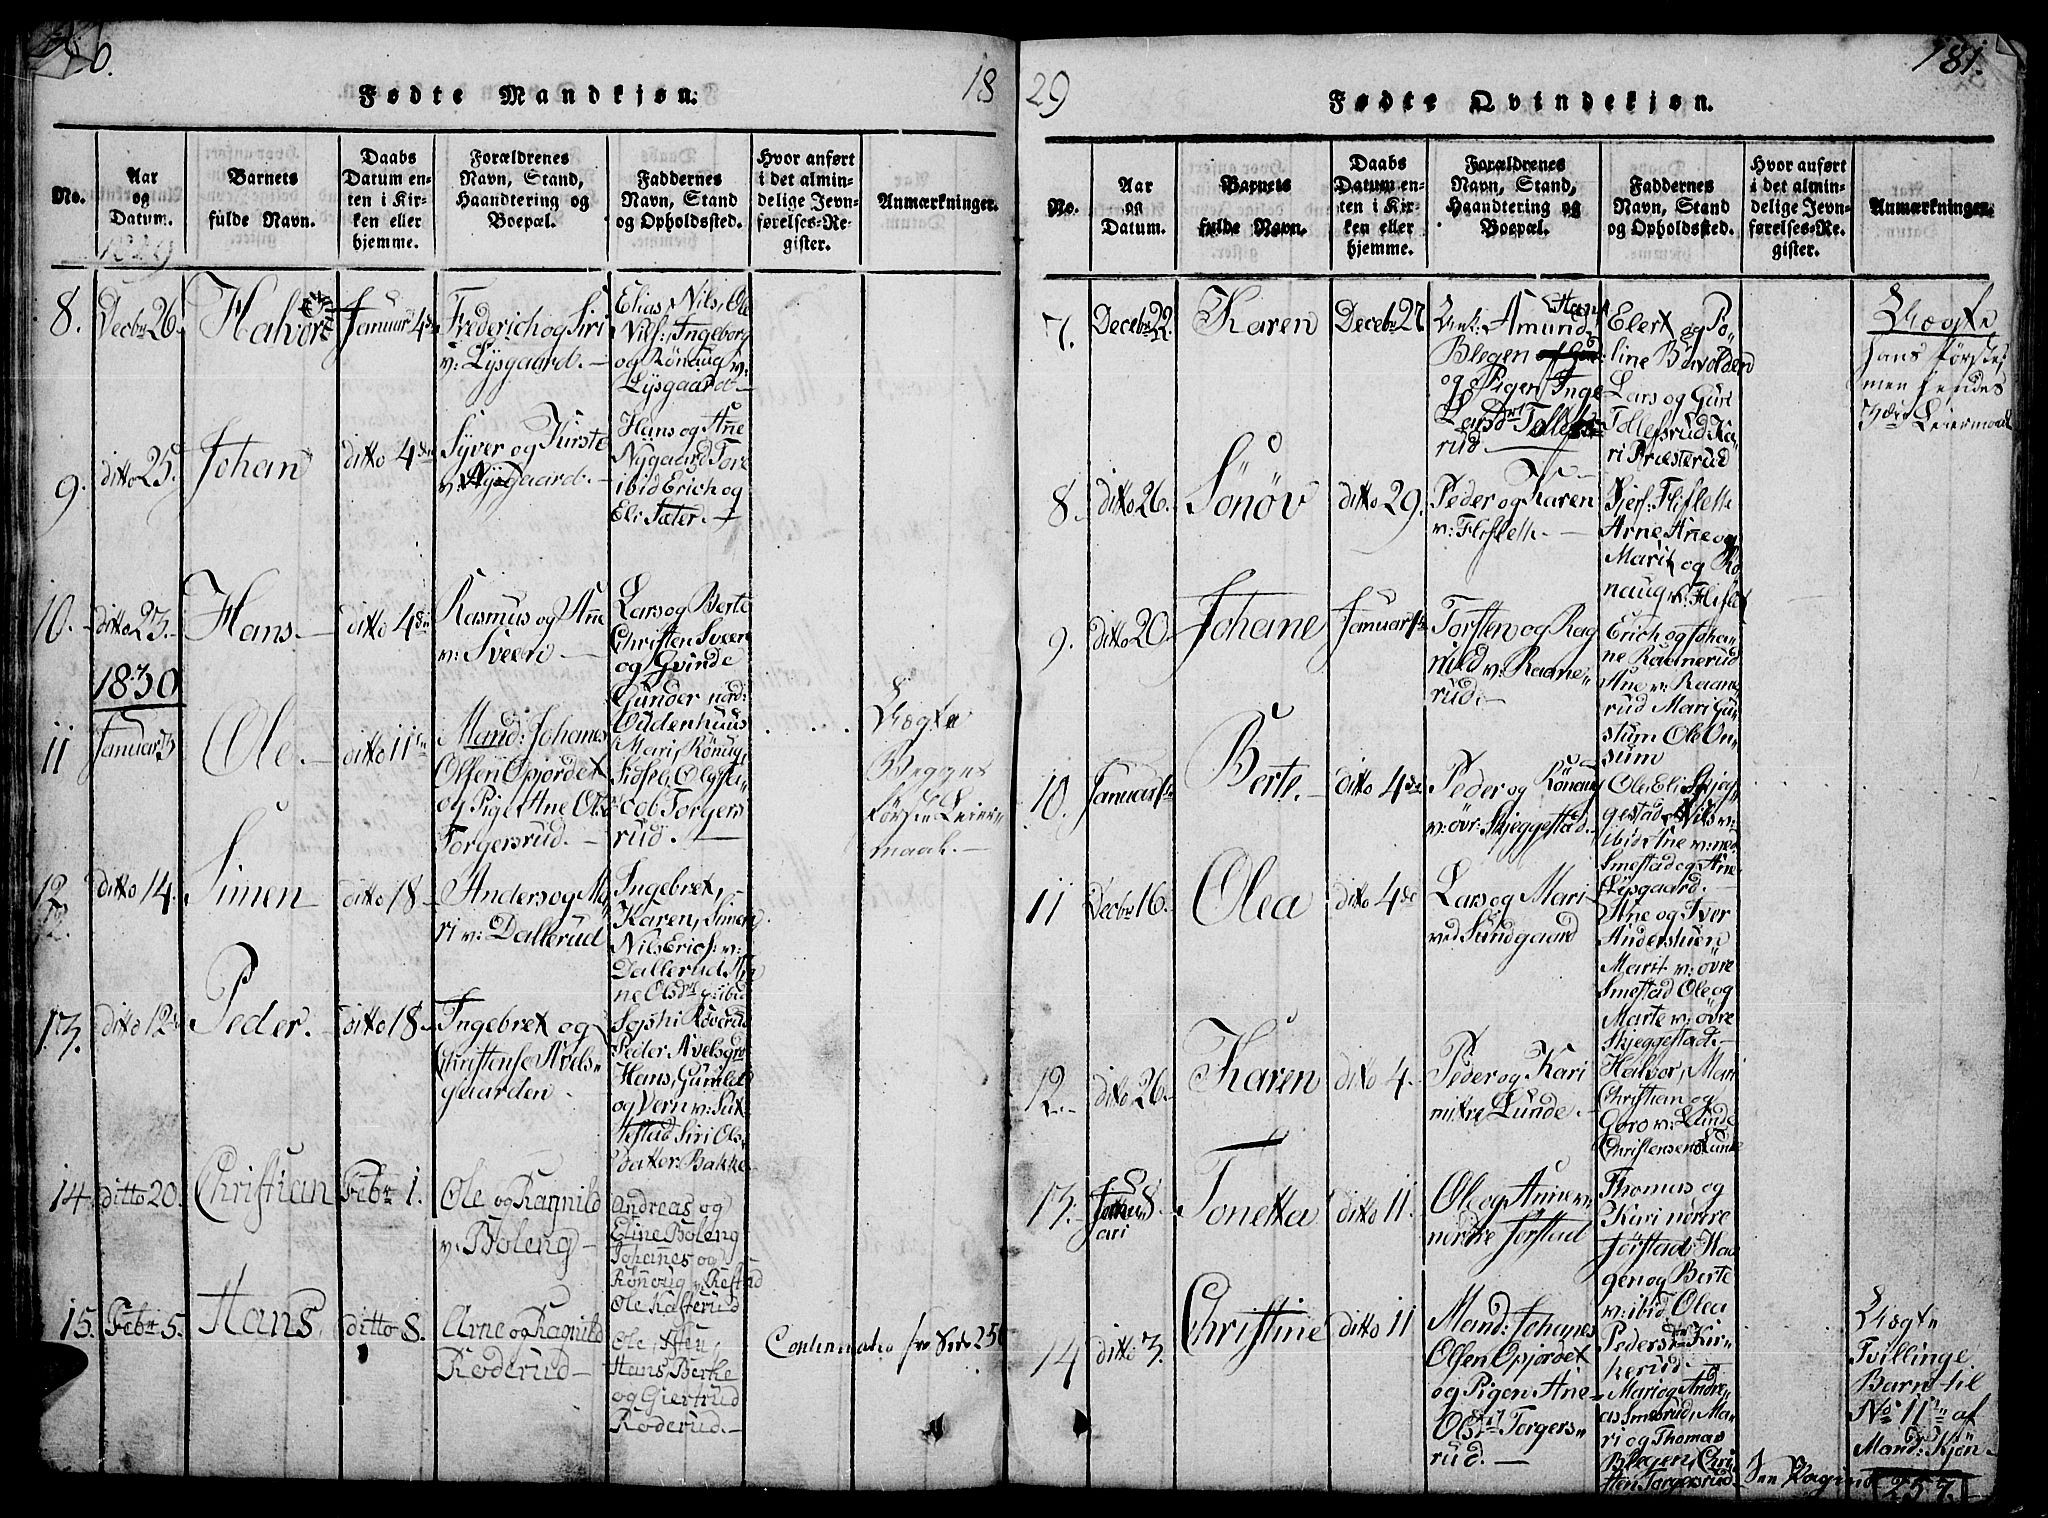 18
Fødte Mandkjøn.
No.
Aar
og
Datum.
1829
Barnets
fulde Navn.
Daabs
Datum en-
ten i Kir-
ken eller
hjemme.
Forældrenes
Navn, Stand,
Haandtering og
Boepæl.
Faddernes
Navn, Stand
og Opholdssted.
Hvor anført
i det almin-
delige Jevn-
førelses-Re-
gister.
Anmærkninger.
8.
Decbr 26.
Halvor
Januar 4de
Frederich og Siri
v: Lysgaard.
Elias, Nils, Ole
Nils: Ingeborg
og Rönaug v:
Lysgaard.
9.
ditto 25.
Johan
ditto 4de
Syver og Kirste
v: Nygaard.
Hans og Ane
Nygaard Tore
ibid Erich og
Eli Sæter.
10.
ditto 23.
Hans
ditto 4de
Rasmus og Ane
v: Sveen
Lars og Berte
Christen Sveen
og Qvinde
Gunder nord:
1830
11
Januar 3
Ole.
ditto 11te
Mand: Johanes
Olsen Opjordet
og Pigen Ane Ols
Torgersrud.
Oudenhuus
Mari, Rönaug
Torgers
rud.
Uægte
Begges
første Leier-
maal.
12
12.
ditto 14.
Simen
ditto 18
Anders og Ma
ri v: Dallerud
Ingebret,
Karen, Simen
Nils Erich: v:
Dallerud, An
ne Olsdtr ibid
13.
ditto 12
Peder.
ditto 18
Ingebret og
Christense Avels-
gaarden.
Sophi Röverud
Peder Avelsgrd
Hans, Gunild
og Vern v: Sæt
testad Siri Ols
datter: Bakke
14.
ditto 20.
Christian
Febr 1.
Ole og Ragnild
v: Boleng
Andreas og
Eline Boleng
Johannes og
Rönoug v: Refstad
Ole Kalferud
15.
Febr 5.
Hans
ditto 8.
Arne og Ragnild
Röderud
Ole,
Hans, Berte
og Giertrud
Röderud.
Continuatio se Side 256
29
181.
Fødte Qvindekjøn.
No.
Aar
og
Datum.
Barnets
fulde Navn.
Daabs
Datum en-
ten i Kir-
ken eller
hjemme.
Forældrenes
Navn, Stand,
Haandtering og
Boepæl.
Faddernes
Navn, Stand
og Opholdssted.
Hvor anført
i det almin-
delige Jevn-
førelses-Re-
gister.
Anmærkninger.
7.
Decebr 22.
Karen
Decebr 27
Amund
Blegen
og Pigen Inge
Larsdtr Tollefs
rud.
Elert og Po
line Bövolden
Lars og Guri
Tollefsrud Ka
ri Præsterud
Uægte
hans første,
men hendes
3die Leiermaal
8.
ditto 26.
Sönöv
ditto 29.
Peder og Karen
v: Flifleth.
Flifleth
Arne Ane og
Marit og Rö
naug v: Fliflet
9.
ditto 20
Johane
Januar 1te
Torsten og Rag
nild v: Raane-
rud.
Erich og Joha-
ne Raanerud
Ane v: Raane
rud Mari Gu-
stum Ole On-
sum
10.
Januar 1te
Berte.
ditto 4de
Peder og Rönaug
v: övr: Skjeggestad.
Ole Eli Skjeg
gestad Nils v:
ibid Ane v: ned:
Smestad og Ane
Lysgaard.
11
Decbr 16.
Olea
ditto 4de
Lars og Mari
ved Sundgaard
Ane og Iver
Andershuen
Marit v: övre
Smestad Ole og
Marte v: övre
Skjeggestad.
12.
ditto 26.
Karen
ditto 4.
Peder og Kari
mitre Lunde.
Halvor, Mari
Christian og
Goro v: Lunde
Christensen Lunde
13.
8.
ari
Tonetta
ditto 11.
Ole og Anne v:
nörre Jörstad
Thomas og
Kari nörre
Jörstad Haa
gen og Berte
v: ibid Olea
Pedersdtr Kir-
kerud.
14
ditto 3.
Christine
ditto 11
Mand: Johanes
Olsen Opjordet
og Pigen Ane
Olsdtr Torgers-
rud.
Mari og Andre-
as Smesrud, Ma-
ri og Thomas
Blegen, Chri
sten Torgersrud
Uægte
Tvillinge
Barn til
No 11te af
Mand: Kjön
See Pagina 257.